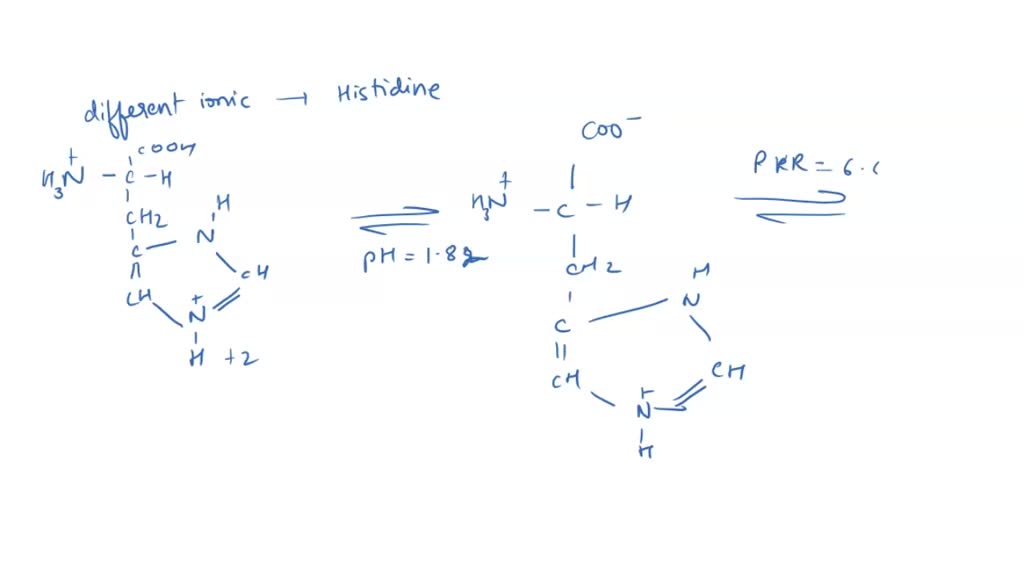 different ionic → Histidine
COOH
H₃N⁺ - C - H
CH₂
C - N H
CH
CH
N⁺
H +2
pH = 1.82
COO⁻
H₃N⁺ - C - H
CH₂
C
N H
CH
CH
N⁺
H
PKR = 6.0